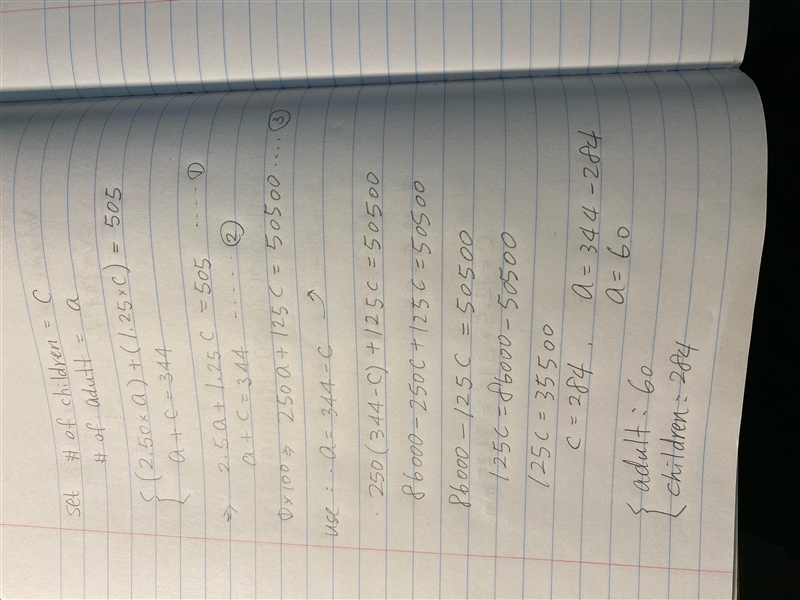 set # of children = C
# of adult = a
{ (2.50×a)+(1.25×c) = 505
a+c = 344
⇒ 2.5a+1.25c = 505 ..... ①
a+c = 344 ...... ②
①×100 ⇒ 250a+125c = 50500 .... ③
use: a = 344-c ↗
250(344-c)+125c = 50500
86000-250c+125c = 50500
86000-125c = 50500
125c = 86000-50500
125c = 35500
c = 284, a = 344-284
a = 60
{ adult: 60
children: 284